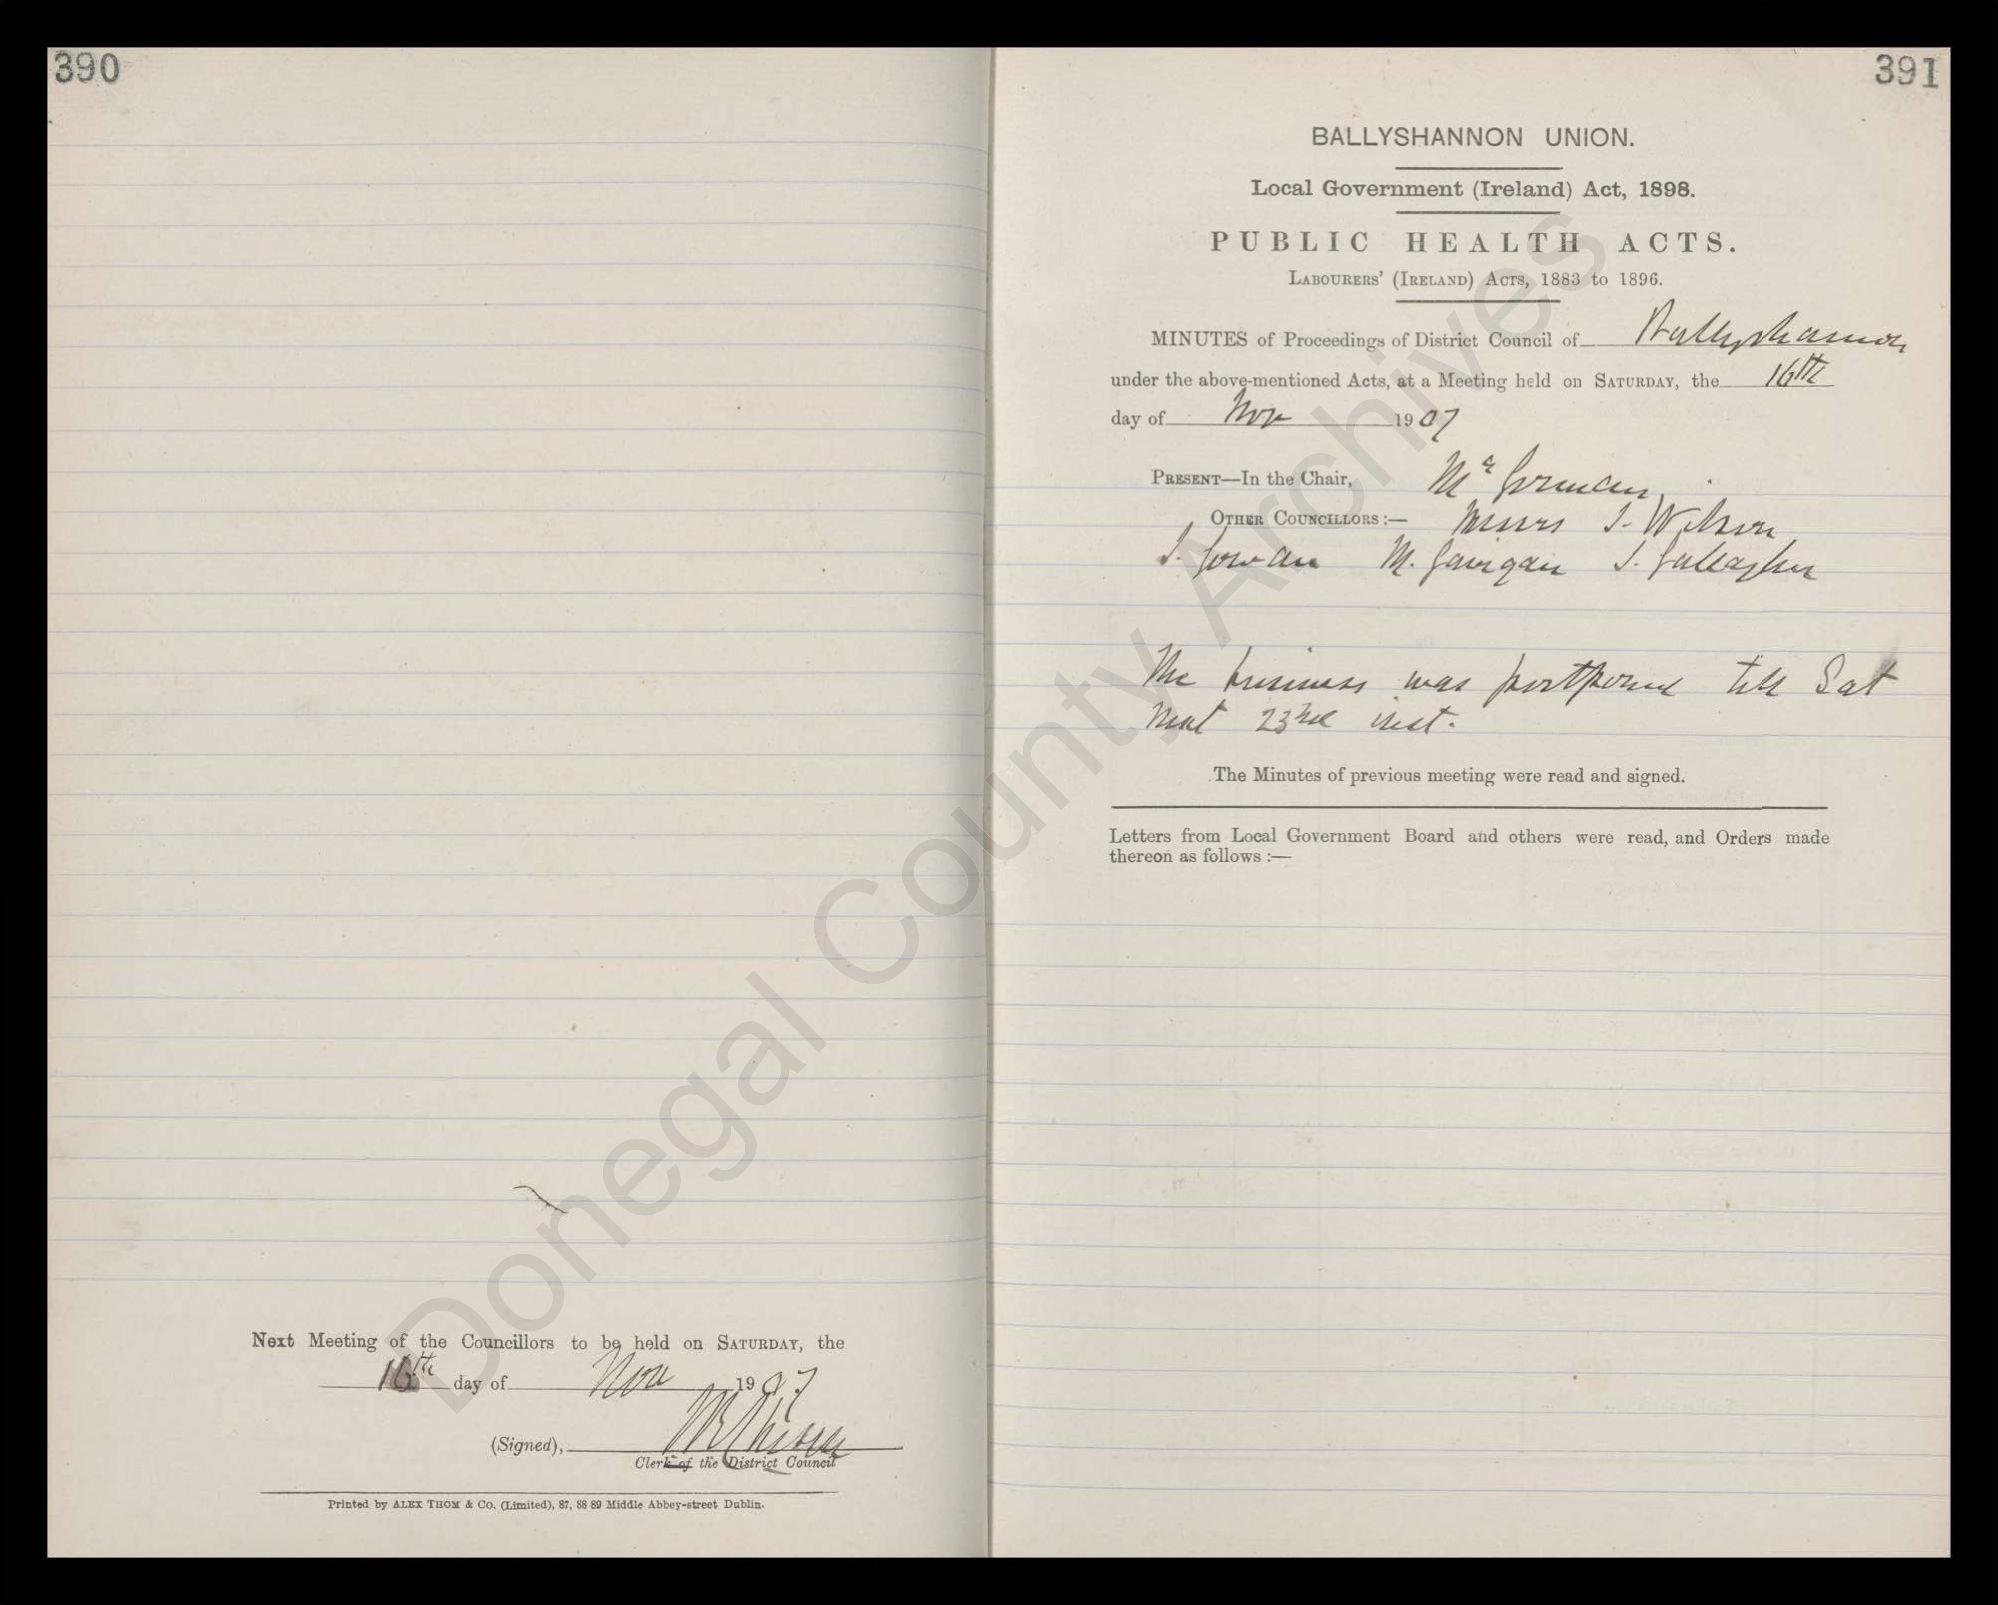 390
Next Meeting of the Councillors to be held on SATURDAY, the
16th day of Nov 1907
(Signed),
Clerk of the District Council
Printed by ALEX THOM & Co. (Limited), 87, 88 89 Middle Abbey-street Dublin.
391
BALLYSHANNON UNION.
Local Government (Ireland) Act, 1898.
PUBLIC HEALTH ACTS.
LABOURERS' (IRELAND) ACTS, 1883 to 1896.
MINUTES of Proceedings of District Council of Ballyshannon
under the above-mentioned Acts, at a Meeting held on SATURDAY, the 16th
day of Nov 1907
PRESENT—In the Chair, Mr Gorman
OTHER COUNCILLORS:— Messrs J. Wilson
J. Gowan M. Gavigan J. Gallagher
The business was postponed till Sat
next 23rd inst.
The Minutes of previous meeting were read and signed.
Letters from Local Government Board and others were read, and Orders made
thereon as follows :—
Donegal County Archives